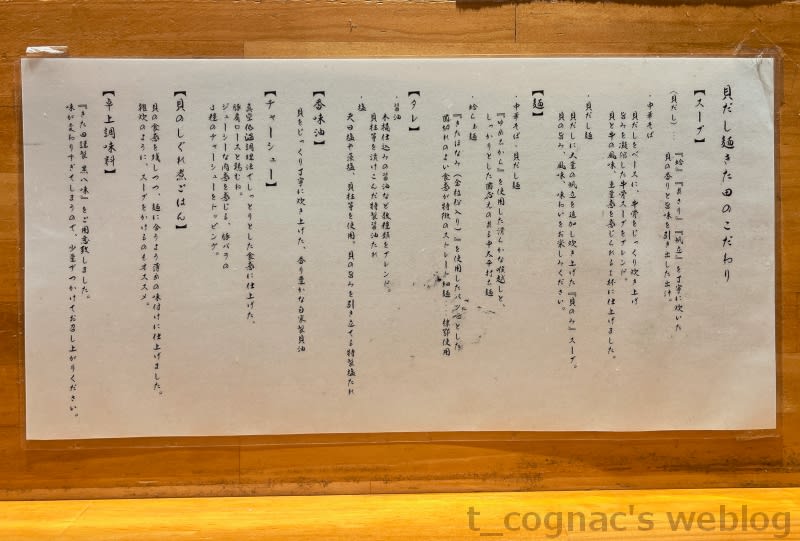 貝だし麺きた田のこだわり
【スープ】
(貝だし)…『蛤』『あさり』『帆立』を丁寧に炊いた
貝の香りと旨味を引き出した出汁。
・中華そば
貝だしをベースに、牛骨をじっくり炊き上げ
旨みを凝縮した牛骨スープをブレンド。
貝と牛の風味、重量感を感じられる1杯に仕上げました。
・貝だし麺
貝だしに大量の帆立を追加し炊き上げた『貝のみ』スープ。
貝の旨み、風味、味わいをお楽しみください。
【麺】
・中華そば・貝だし麺
『ゆめちから』を使用した滑らかな喉越しと、
しっかりとした歯応えのある中太平打ち麺
・蛤らぁ麺
『きたほなみ(全粒粉入り)』を使用したパツっとした
歯切れのよい食感が特徴のストレート細麺…
【タレ】
・醤油
木桶仕込みの醤油など数種類をブレンド。
貝柱等を漬けこんだ特製醤油だれ
・塩
天日塩や藻塩、貝柱等を使用。貝の旨みを引き立てる特製塩だれ
【香味油】
貝をじっくり丁寧に炊き上げた、香り豊かな自家製貝油
【チャーシュー】
真空低温調理法でしっとりとした食感に仕上げた、
豚肩ロースと鶏むね。
ジューシーな肉感を感じる、豚バラの
3種のチャーシューをトッピング。
【貝のしぐれ煮ごはん】
貝の食感を残しつつ、麺に合うよう薄めの味付けに仕上げました。
雑炊のように、スープをかけるのもオススメ。
【卓上調味料】
『きた田謹製 黒八味』をご用意致しました。
味が変わりすぎてしまうので、少量ずつかけてお召し上がりください。
t_cognac's weblog